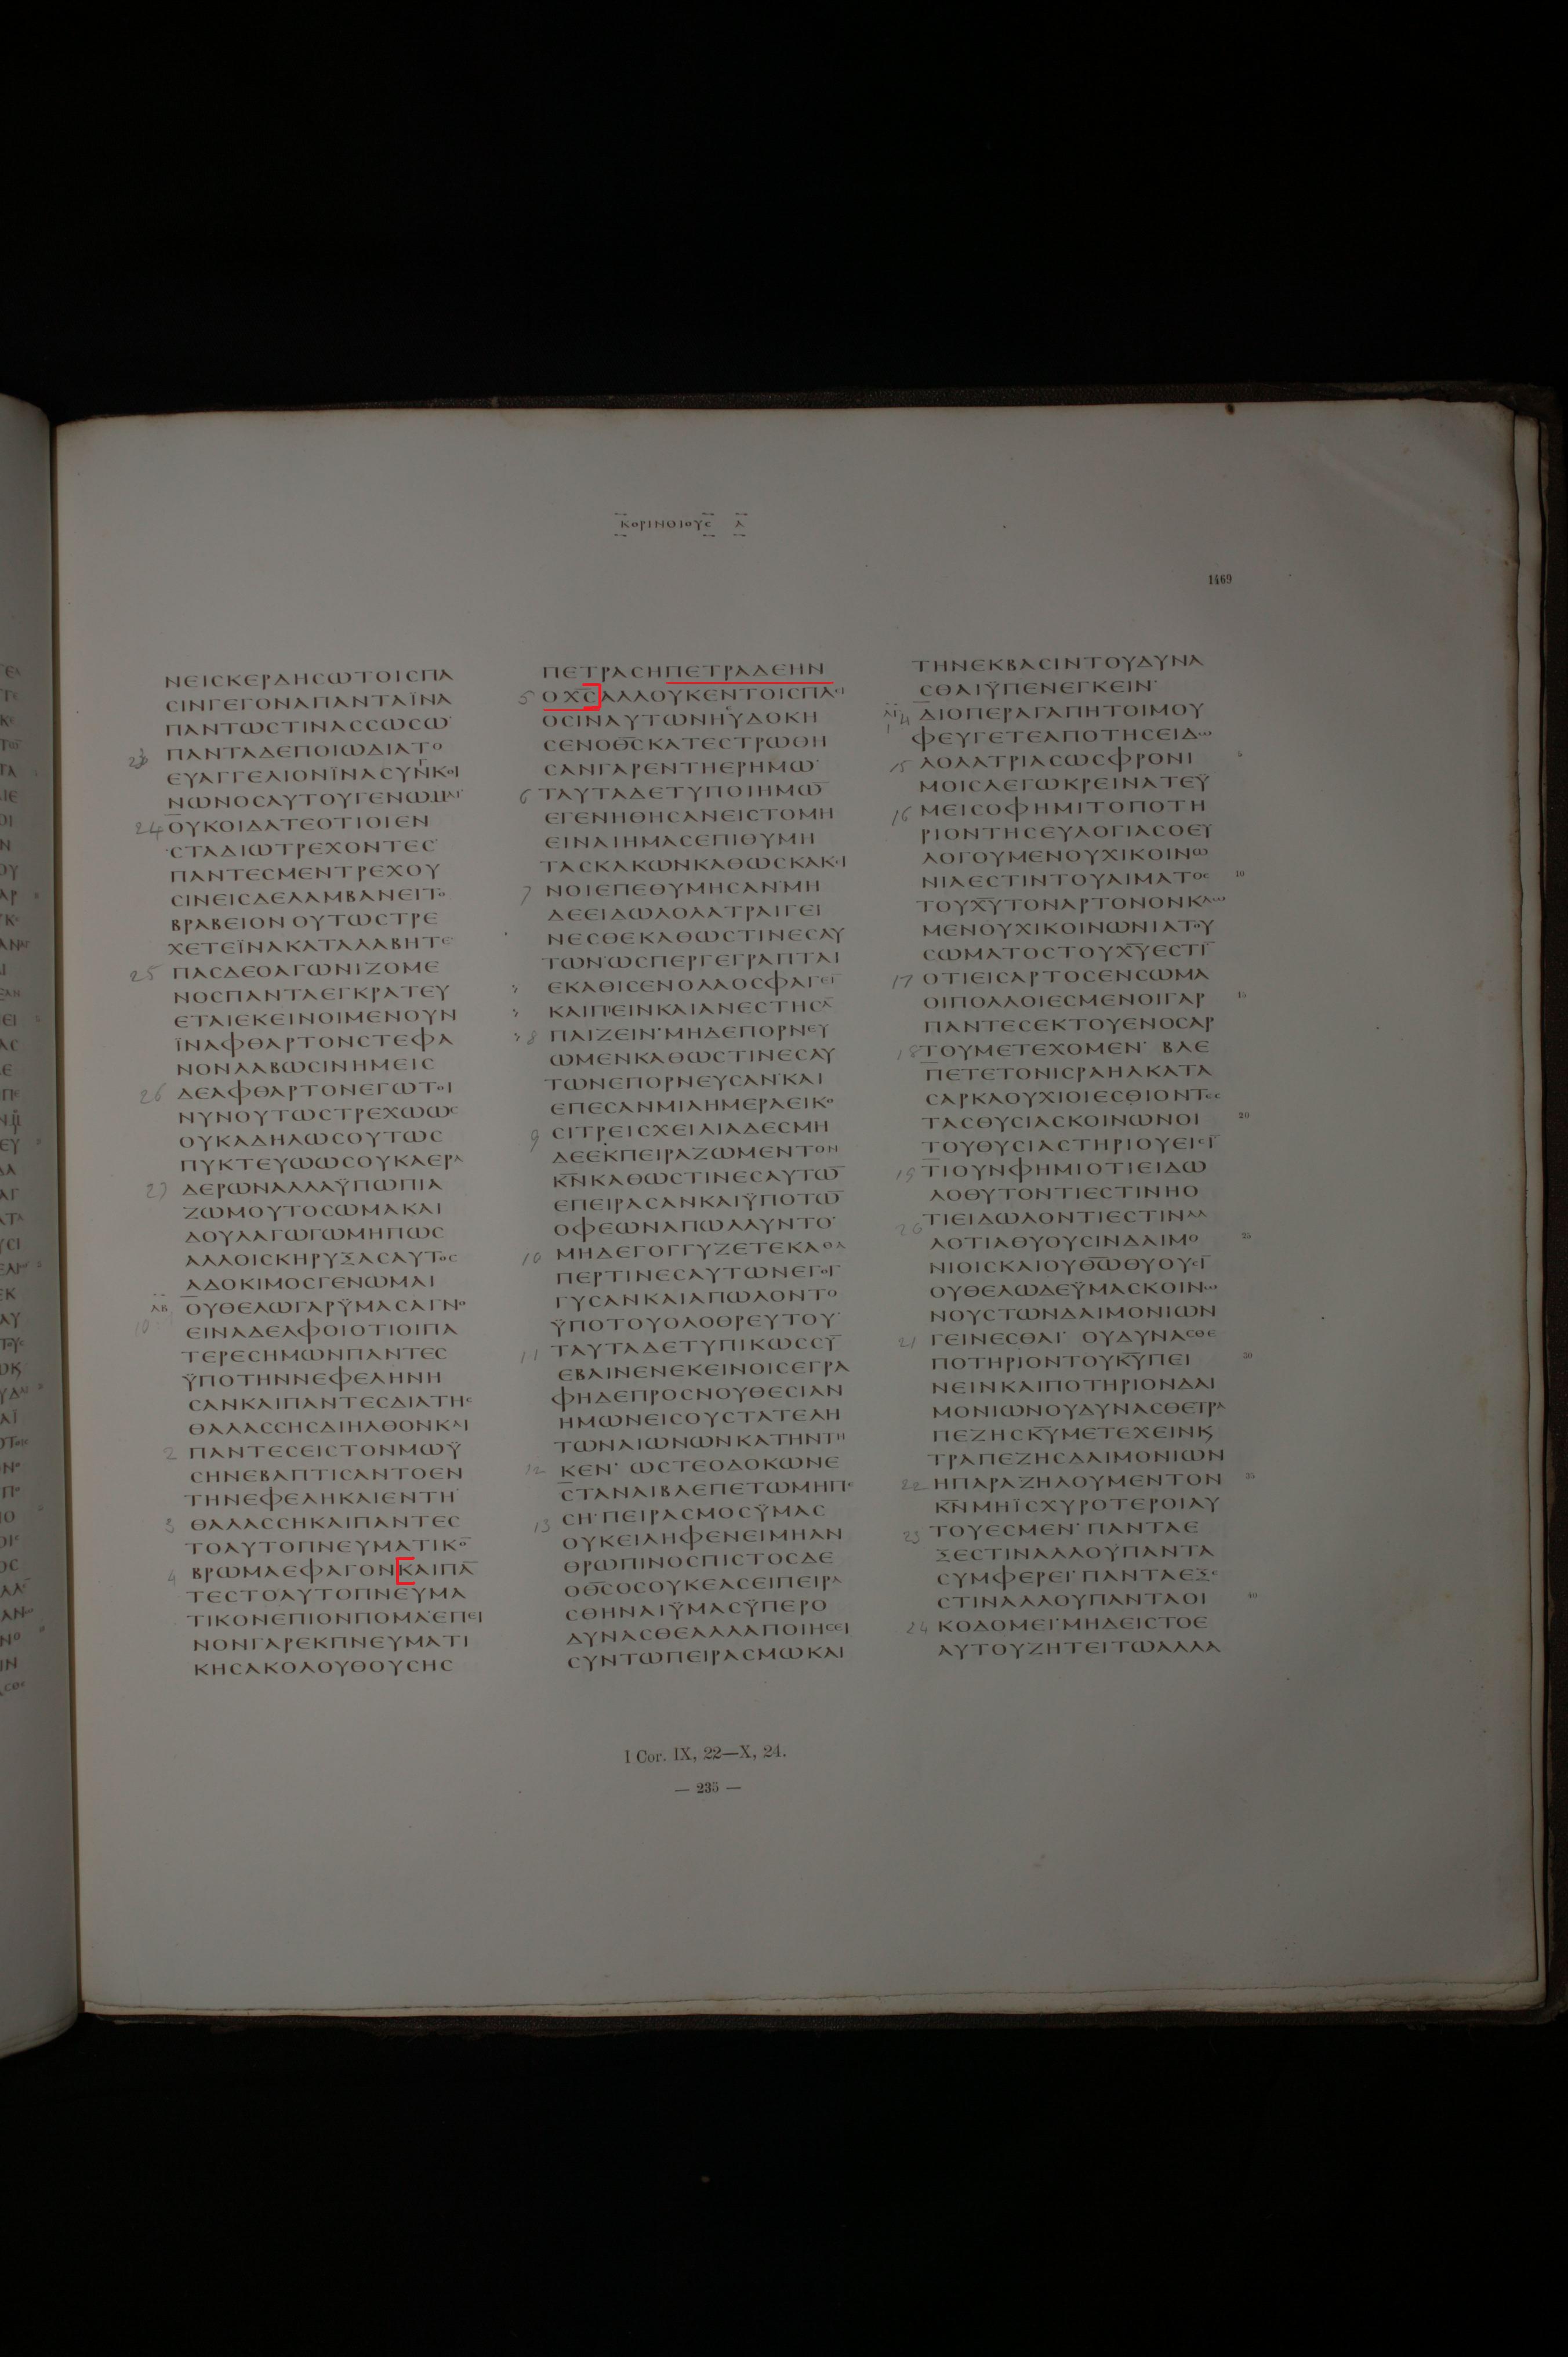 ΚΟΡΙΝΘΙΟΥϹ Α
1469
ΝΕΙϹΚΕΡΔΗϹΩΤΟΙϹΠΑ
ϹΙΝΓΕΓΟΝΑΠΑΝΤΑΪΝΑ
ΠΑΝΤΩϹΤΙΝΑϹϹΩϹΩ·
23 ΠΑΝΤΑΔΕΠΟΙΩΔΙΑΤΟ
ΕΥΑΓΓΕΛΙΟΝΪΝΑϹΥΝΚΟΙ
ΝΩΝΟϹΑΥΤΟΥΓΕΝΩΜΑΙ·
24 ΟΥΚΟΙΔΑΤΕΟΤΙΟΙΕΝ
ϹΤΑΔΙΩΤΡΕΧΟΝΤΕϹ
ΠΑΝΤΕϹΜΕΝΤΡΕΧΟΥ
ϹΙΝΕΙϹΔΕΛΑΜΒΑΝΕΙΤΟ
ΒΡΑΒΕΙΟΝ ΟΥΤΩϹΤΡΕ
ΧΕΤΕΪΝΑΚΑΤΑΛΑΒΗΤΕ
25 ΠΑϹΔΕΟΑΓΩΝΙΖΟΜΕ
ΝΟϹΠΑΝΤΑΕΓΚΡΑΤΕΥ
ΕΤΑΙΕΚΕΙΝΟΙΜΕΝΟΥΝ
ΪΝΑΦΘΑΡΤΟΝϹΤΕΦΑ
ΝΟΝΛΑΒΩϹΙΝΗΜΕΙϹ
26 ΔΕΑΦΘΑΡΤΟΝΕΓΩΤΟΙ
ΝΥΝΟΥΤΩϹΤΡΕΧΩΩϹ
ΟΥΚΑΔΗΛΩϹΟΥΤΩϹ
ΠΥΚΤΕΥΩΩϹΟΥΚΑΕΡΑ
27 ΔΕΡΩΝΑΛΛΑΫΠΩΠΙΑ
ΖΩΜΟΥΤΟϹΩΜΑΚΑΙ
ΔΟΥΛΑΓΩΓΩΜΗΠΩϹ
ΑΛΛΟΙϹΚΗΡΥΞΑϹΑΥΤΟϹ
ΑΔΟΚΙΜΟϹΓΕΝΩΜΑΙ
ΛΒ ΟΥΘΕΛΩΓΑΡΫΜΑϹΑΓΝΟ
10 ΕΙΝΑΔΕΛΦΟΙΟΤΙΟΙΠΑ
ΤΕΡΕϹΗΜΩΝΠΑΝΤΕϹ
ΫΠΟΤΗΝΝΕΦΕΛΗΝΗ
ϹΑΝΚΑΙΠΑΝΤΕϹΔΙΑΤΗϹ
ΘΑΛΑϹϹΗϹΔΙΗΛΘΟΝΚΑΙ
2 ΠΑΝΤΕϹΕΙϹΤΟΝΜΩΫ
ϹΗΝΕΒΑΠΤΙϹΑΝΤΟΕΝ
ΤΗΝΕΦΕΛΗΚΑΙΕΝΤΗ
3 ΘΑΛΑϹϹΗΚΑΙΠΑΝΤΕϹ
ΤΟΑΥΤΟΠΝΕΥΜΑΤΙΚΟ̅
4 ΒΡΩΜΑΕΦΑΓΟΝΚΑΙΠΑ̅
ΤΕϹΤΟΑΥΤΟΠΝΕΥΜΑ
ΤΙΚΟΝΕΠΙΟΝΠΟΜΑ·ΕΠΕΙ
ΝΟΝΓΑΡΕΚΠΝΕΥΜΑΤΙ
ΚΗϹΑΚΟΛΟΥΘΟΥϹΗϹ
ΠΕΤΡΑϹΗΠΕΤΡΑΔΕΗΝ
5 ΟΧ̅Ϲ̅ΑΛΛΟΥΚΕΝΤΟΙϹΠΛΕΙ
ΟϹΙΝΑΥΤΩΝΗΥΔΟΚΗ
ϹΕΝΟΘ̅Ϲ̅ΚΑΤΕϹΤΡΩΘΗ
ϹΑΝΓΑΡΕΝΤΗΕΡΗΜΩ·
6 ΤΑΥΤΑΔΕΤΥΠΟΙΗΜΩ̅
ΕΓΕΝΗΘΗϹΑΝΕΙϹΤΟΜΗ
ΕΙΝΑΙΗΜΑϹΕΠΙΘΥΜΗ
ΤΑϹΚΑΚΩΝΚΑΘΩϹΚΑΚΕΙ
7 ΝΟΙΕΠΕΘΥΜΗϹΑΝ·ΜΗ
ΔΕΕΙΔΩΛΟΛΑΤΡΑΙΓΕΙ
ΝΕϹΘΕΚΑΘΩϹΤΙΝΕϹΑΥ
ΤΩΝ·ΩϹΠΕΡΓΕΓΡΑΠΤΑΙ
ΕΚΑΘΙϹΕΝΟΛΑΟϹΦΑΓΕΙ̅
ΚΑΙΠΕΙΝΚΑΙΑΝΕϹΤΗϹΑ̅
8 ΠΑΙΖΕΙΝ·ΜΗΔΕΠΟΡΝΕΥ
ΩΜΕΝΚΑΘΩϹΤΙΝΕϹΑΥ
ΤΩΝΕΠΟΡΝΕΥϹΑΝ·ΚΑΙ
ΕΠΕϹΑΝΜΙΑΗΜΕΡΑΕΙΚΟ
9 ϹΙΤΡΕΙϹΧΕΙΛΙΑΔΕϹΜΗ
ΔΕΕΚΠΕΙΡΑΖΩΜΕΝΤΟΝ
Κ̅Ν̅ΚΑΘΩϹΤΙΝΕϹΑΥΤΩ̅
ΕΠΕΙΡΑϹΑΝΚΑΙΫΠΟΤΩ̅
ΟΦΕΩΝΑΠΩΛΛΥΝΤΟ·
10 ΜΗΔΕΓΟΓΓΥΖΕΤΕΚΑΘΑ
ΠΕΡΤΙΝΕϹΑΥΤΩΝΕΓΟΓ
ΓΥϹΑΝΚΑΙΑΠΩΛΟΝΤΟ
ΫΠΟΤΟΥΟΛΟΘΡΕΥΤΟΥ·
11 ΤΑΥΤΑΔΕΤΥΠΙΚΩϹϹΥ̅
ΕΒΑΙΝΕΝΕΚΕΙΝΟΙϹΕΓΡΑ
ΦΗΔΕΠΡΟϹΝΟΥΘΕϹΙΑΝ
ΗΜΩΝΕΙϹΟΥϹΤΑΤΕΛΗ
ΤΩΝΑΙΩΝΩΝΚΑΤΗΝΤΗ
12 ΚΕΝ· ΩϹΤΕΟΔΟΚΩΝΕ
ϹΤΑΝΑΙΒΛΕΠΕΤΩΜΗΠΕ
13 ϹΗ·ΠΕΙΡΑϹΜΟϹΫΜΑϹ
ΟΥΚΕΙΛΗΦΕΝΕΙΜΗΑΝ
ΘΡΩΠΙΝΟϹΠΙϹΤΟϹΔΕ
ΟΘ̅Ϲ̅ΟϹΟΥΚΕΑϹΕΙΠΕΙΡΑ
ϹΘΗΝΑΙΫΜΑϹΫΠΕΡΟ
ΔΥΝΑϹΘΕΑΛΛΑΠΟΙΗϹΕΙ
ϹΥΝΤΩΠΕΙΡΑϹΜΩΚΑΙ
ΤΗΝΕΚΒΑϹΙΝΤΟΥΔΥΝΑ
ϹΘΑΙΫΠΕΝΕΓΚΕΙΝ·
ΛΓ 14 ΔΙΟΠΕΡΑΓΑΠΗΤΟΙΜΟΥ
ΦΕΥΓΕΤΕΑΠΟΤΗϹΕΙΔΩ
15 ΛΟΛΑΤΡΙΑϹΩϹΦΡΟΝΙ 5
ΜΟΙϹΛΕΓΩΚΡΕΙΝΑΤΕΫ
16 ΜΕΙϹΟΦΗΜΙΤΟΠΟΤΗ
ΡΙΟΝΤΗϹΕΥΛΟΓΙΑϹΟΕΥ
ΛΟΓΟΥΜΕΝΟΥΧΙΚΟΙΝΩ
ΝΙΑΕϹΤΙΝΤΟΥΑΙΜΑΤΟϹ 10
ΤΟΥΧ̅Υ̅ΤΟΝΑΡΤΟΝΟΝΚΛΩ
ΜΕΝΟΥΧΙΚΟΙΝΩΝΙΑΤΟΥ
ϹΩΜΑΤΟϹΤΟΥΧ̅Υ̅ΕϹΤΙ̅
17 ΟΤΙΕΙϹΑΡΤΟϹΕΝϹΩΜΑ
ΟΙΠΟΛΛΟΙΕϹΜΕΝΟΙΓΑΡ 15
ΠΑΝΤΕϹΕΚΤΟΥΕΝΟϹΑΡ
18 ΤΟΥΜΕΤΕΧΟΜΕΝ· ΒΛΕ
ΠΕΤΕΤΟΝΙϹΡΑΗΛΚΑΤΑ
ϹΑΡΚΑΟΥΧΙΟΙΕϹΘΙΟΝΤΕϹ
ΤΑϹΘΥϹΙΑϹΚΟΙΝΩΝΟΙ 20
ΤΟΥΘΥϹΙΑϹΤΗΡΙΟΥΕΙϹΙ̅
19 ΤΙΟΥΝΦΗΜΙΟΤΙΕΙΔΩ
ΛΟΘΥΤΟΝΤΙΕϹΤΙΝΗΟ
20 ΤΙΕΙΔΩΛΟΝΤΙΕϹΤΙΝΑΛ
ΛΟΤΙΑΘΥΟΥϹΙΝΔΑΙΜΟ 25
ΝΙΟΙϹΚΑΙΟΥΘ̅Ω̅ΘΥΟΥϹΙ̅
ΟΥΘΕΛΩΔΕΫΜΑϹΚΟΙΝΩ
ΝΟΥϹΤΩΝΔΑΙΜΟΝΙΩΝ
21 ΓΕΙΝΕϹΘΑΙ· ΟΥΔΥΝΑϹΘΕ
ΠΟΤΗΡΙΟΝΤΟΥΚ̅Υ̅ΠΕΙ 30
ΝΕΙΝΚΑΙΠΟΤΗΡΙΟΝΔΑΙ
ΜΟΝΙΩΝΟΥΔΥΝΑϹΘΕΤΡΑ
ΠΕΖΗϹΚ̅Υ̅ΜΕΤΕΧΕΙΝΚϗ
ΤΡΑΠΕΖΗϹΔΑΙΜΟΝΙΩΝ
22 ΗΠΑΡΑΖΗΛΟΥΜΕΝΤΟΝ 35
Κ̅Ν̅ΜΗΪϹΧΥΡΟΤΕΡΟΙΑΥ
23 ΤΟΥΕϹΜΕΝ· ΠΑΝΤΑΕ
ΞΕϹΤΙΝΑΛΛΟΥΠΑΝΤΑ
ϹΥΜΦΕΡΕΙ·ΠΑΝΤΑΕΞΕ
ϹΤΙΝΑΛΛΟΥΠΑΝΤΑΟΙ 40
24 ΚΟΔΟΜΕΙ·ΜΗΔΕΙϹΤΟΕ
ΑΥΤΟΥΖΗΤΕΙΤΩΑΛΛΑ
I Cor. IX, 22—X, 24.
— 235 —